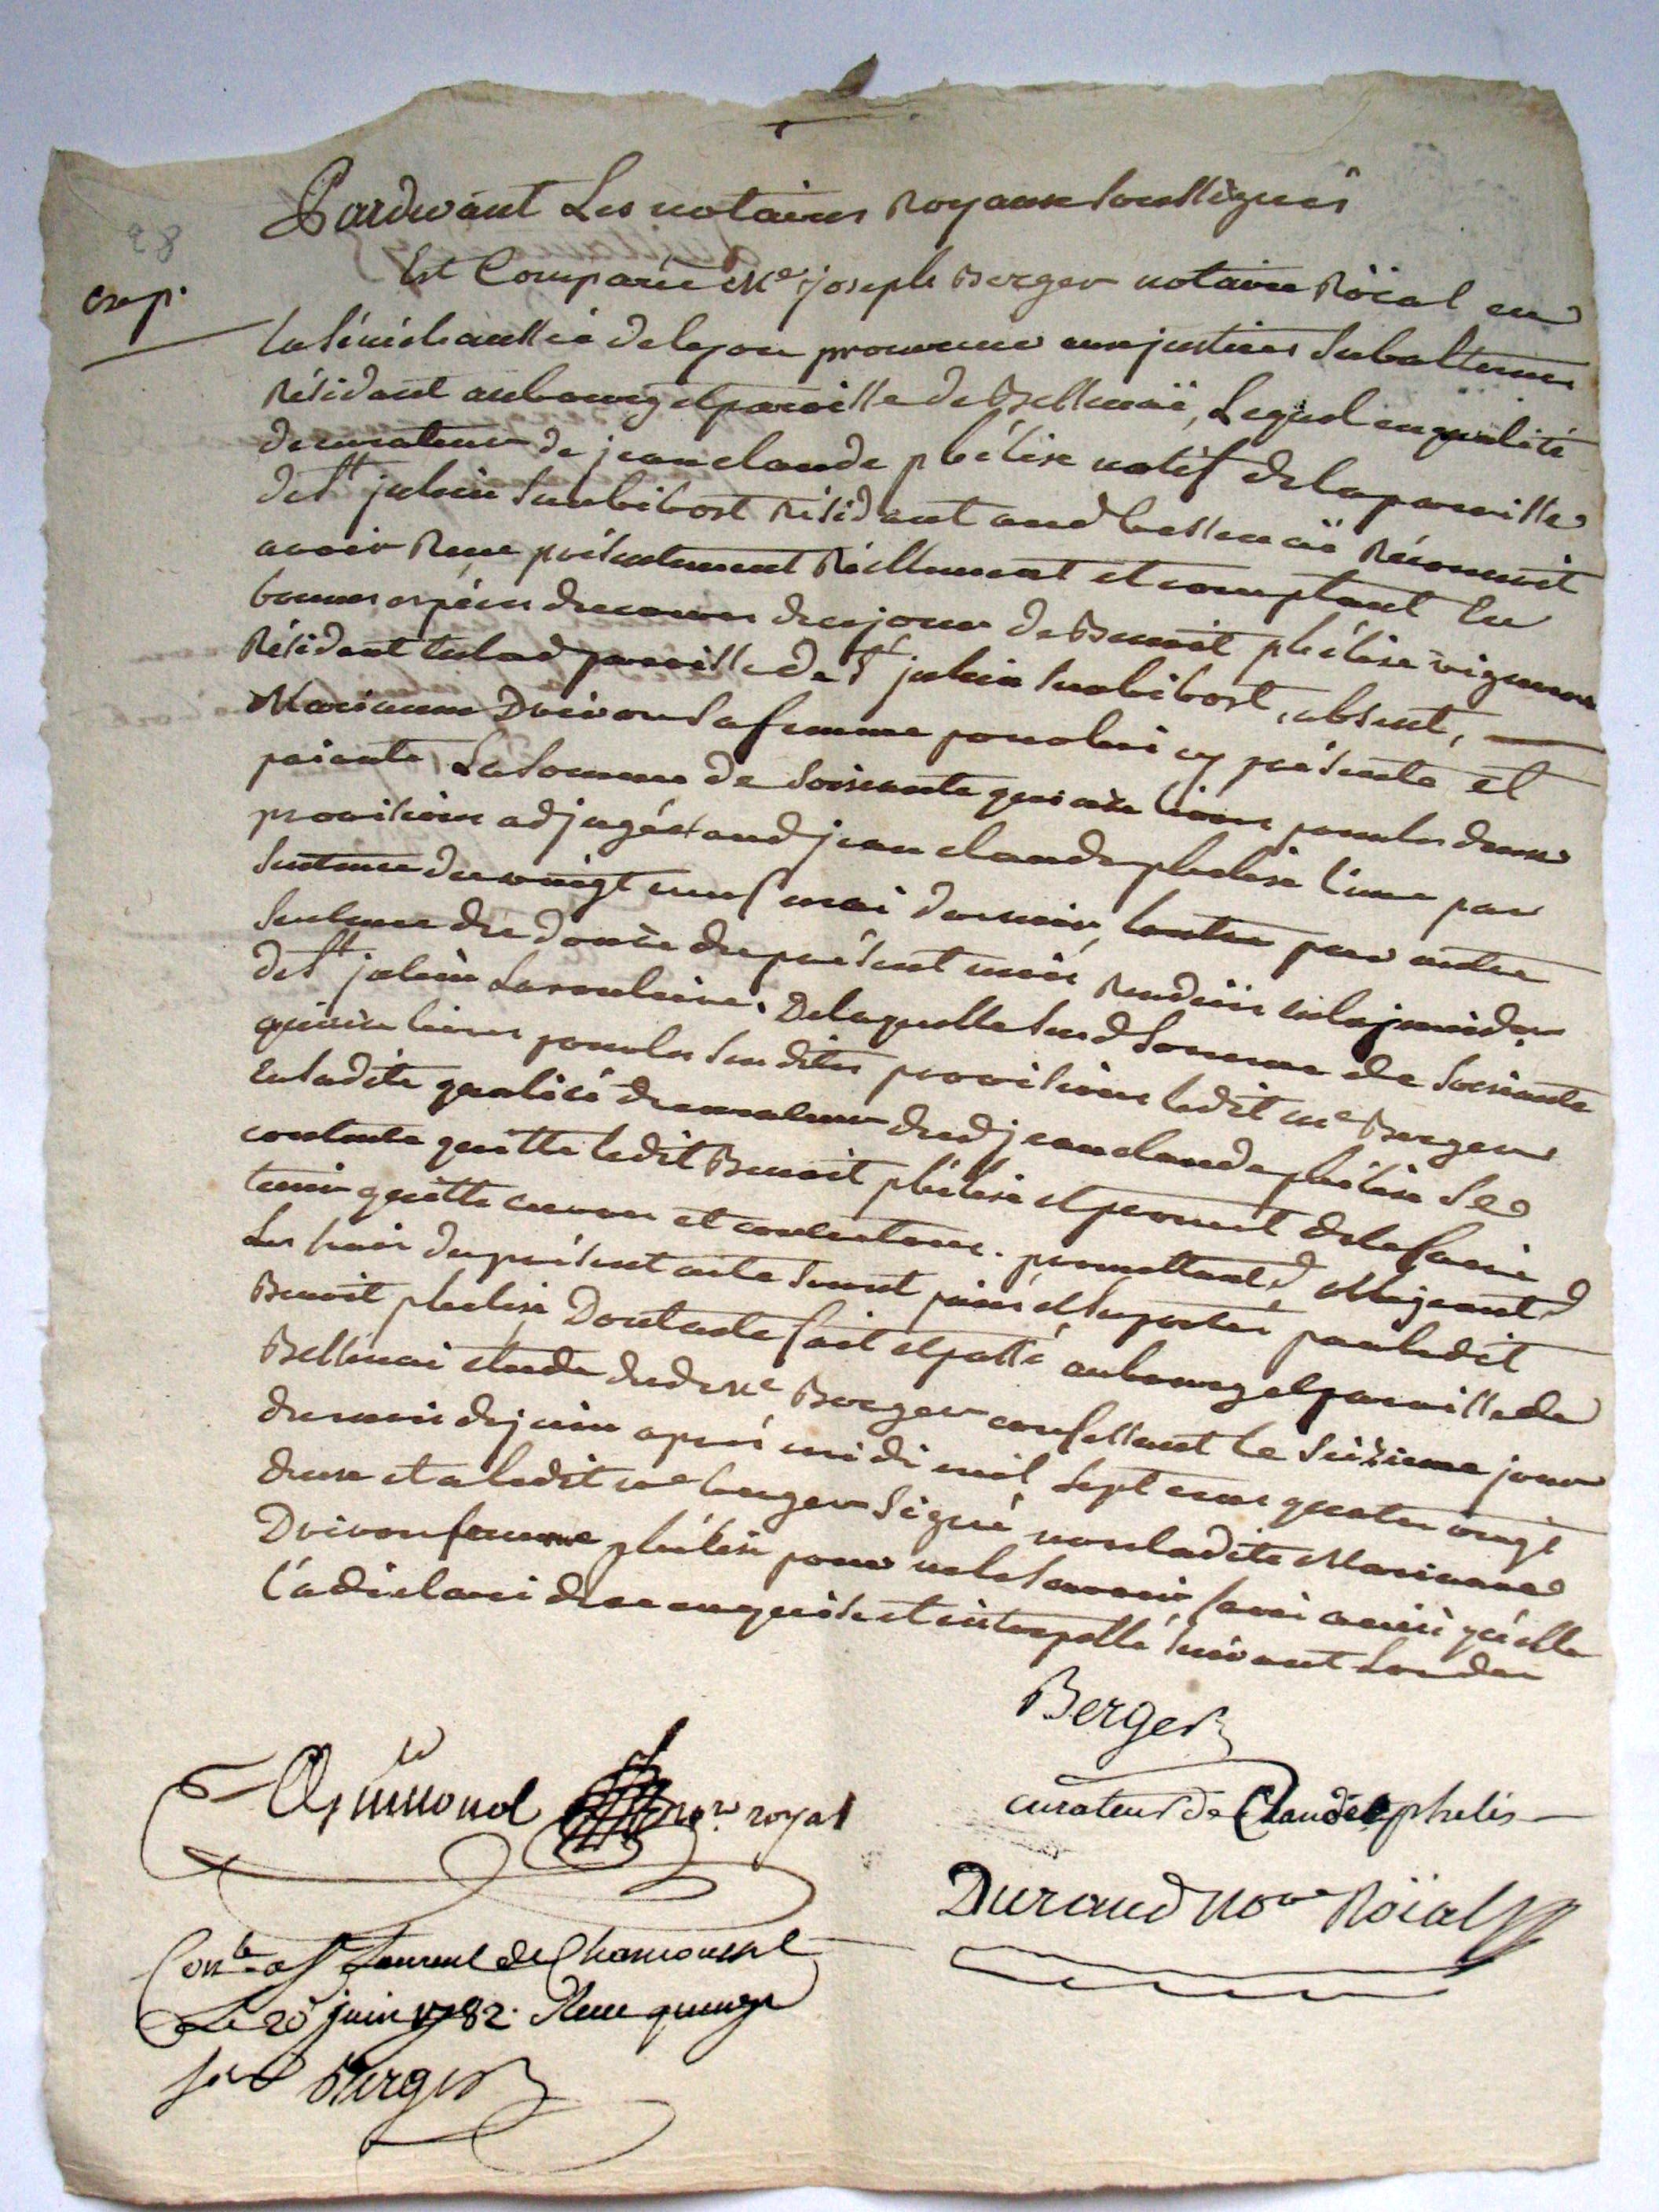 28
exp.
Pardevant Les notaires Royaux soussignés
Est Comparu Me joseph Berger notaire Röial en
la sénéchaussée de lyon procureur aux justices subalternes
Résidant au bourg et paroisse de Bessenaï, Lequel en qualité
de curateur de jean claude phélise natif de la paroisse
de St julien sur bibost Résidant aud bessenaï Réconnoit
avoir Reçu présentement Réellement et comptant en
bonnes espèces de cours de ce jour de Benoit phélise vigneron
Résidant en lad paroisse de St julien sur bibost, absent,
Marianne Drivon sa femme pour lui cy présente et
paiante La somme de soixante quinze livres pour les deux
provisions adjugées aud jean claude phelise l'une par
sentence du vingt neuf mai dernier, lautre par autre
sentence du douze du présent mois Rendües en la jurisdon
de St julien . De laquelle susd somme de soixante
quinze livres pour les susdites provisions ledit me Berger
en sadite qualité de curateur dud jean claude phélise se
contente quitte ledit Benoit phélise et promet de le faire
tenir quitte envers et contre tous. promettant & obligeant &
Les frais du présent acte seront paiés et suportés par ledit
Benoit phelise, Dont acte fait et passé au bourg et paroisse de
Bessenai étude dud me Berger confessant le seizieme jour
du mois de juin après midi mil sept cens quatre vingt
deux et a ledit me berger signé non ladite Marianne
Drivon femme phélise pour ne le savoir faire ainsi qu'elle
l'a déclaré de ce enquise et interpellé suivant lordce
Berger
curateur de Claude phelis
Guimond nore royal
Durand Nore Röial
Conlé a St Laurent de Chamousset
Le 20 juin 1782. Reçu quinze
sols Berger